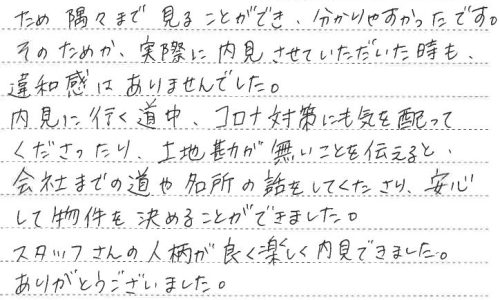 ため隅々まで見ることができ、分かりやすかったです。
そのためか、実際に内見させていただいた時も、
違和感はありませんでした。
内見に行く道中、コロナ対策にも気を配って
くださったり、土地勘が無いことを伝えると、
会社までの道や名所の話をしてくださり、安心
して物件を決めることができました。
スタッフさんの人柄が良く楽しく内見できました。
ありがとうございました。